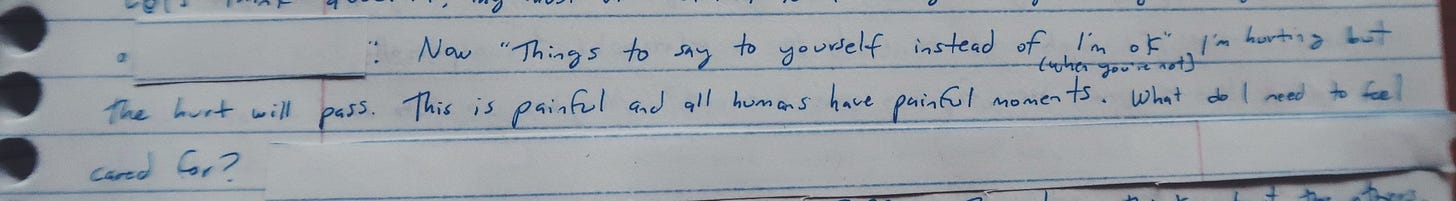 ": Now "Things to say to yourself instead of I'm ok" I'm hurting but
(when you're not)
the hurt will pass. This is painful and all humans have painful moments. What do I need to feel
cared for?